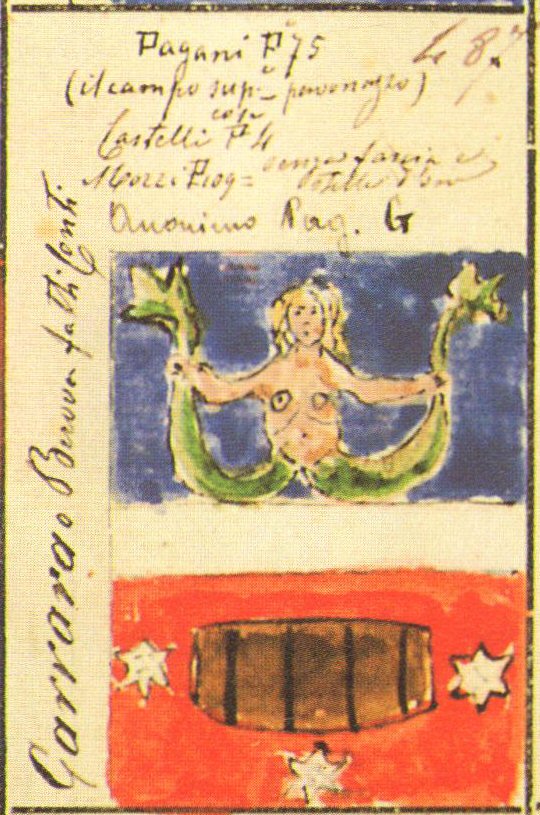 Pagani P° 75
487.
(il campo sup.e pavonazzo)
Castelli P 4
Mozzi P 109 = senza fascia e
stelle d'oro
Anonimo Pag. G
Carrara o Berova fatti Conti